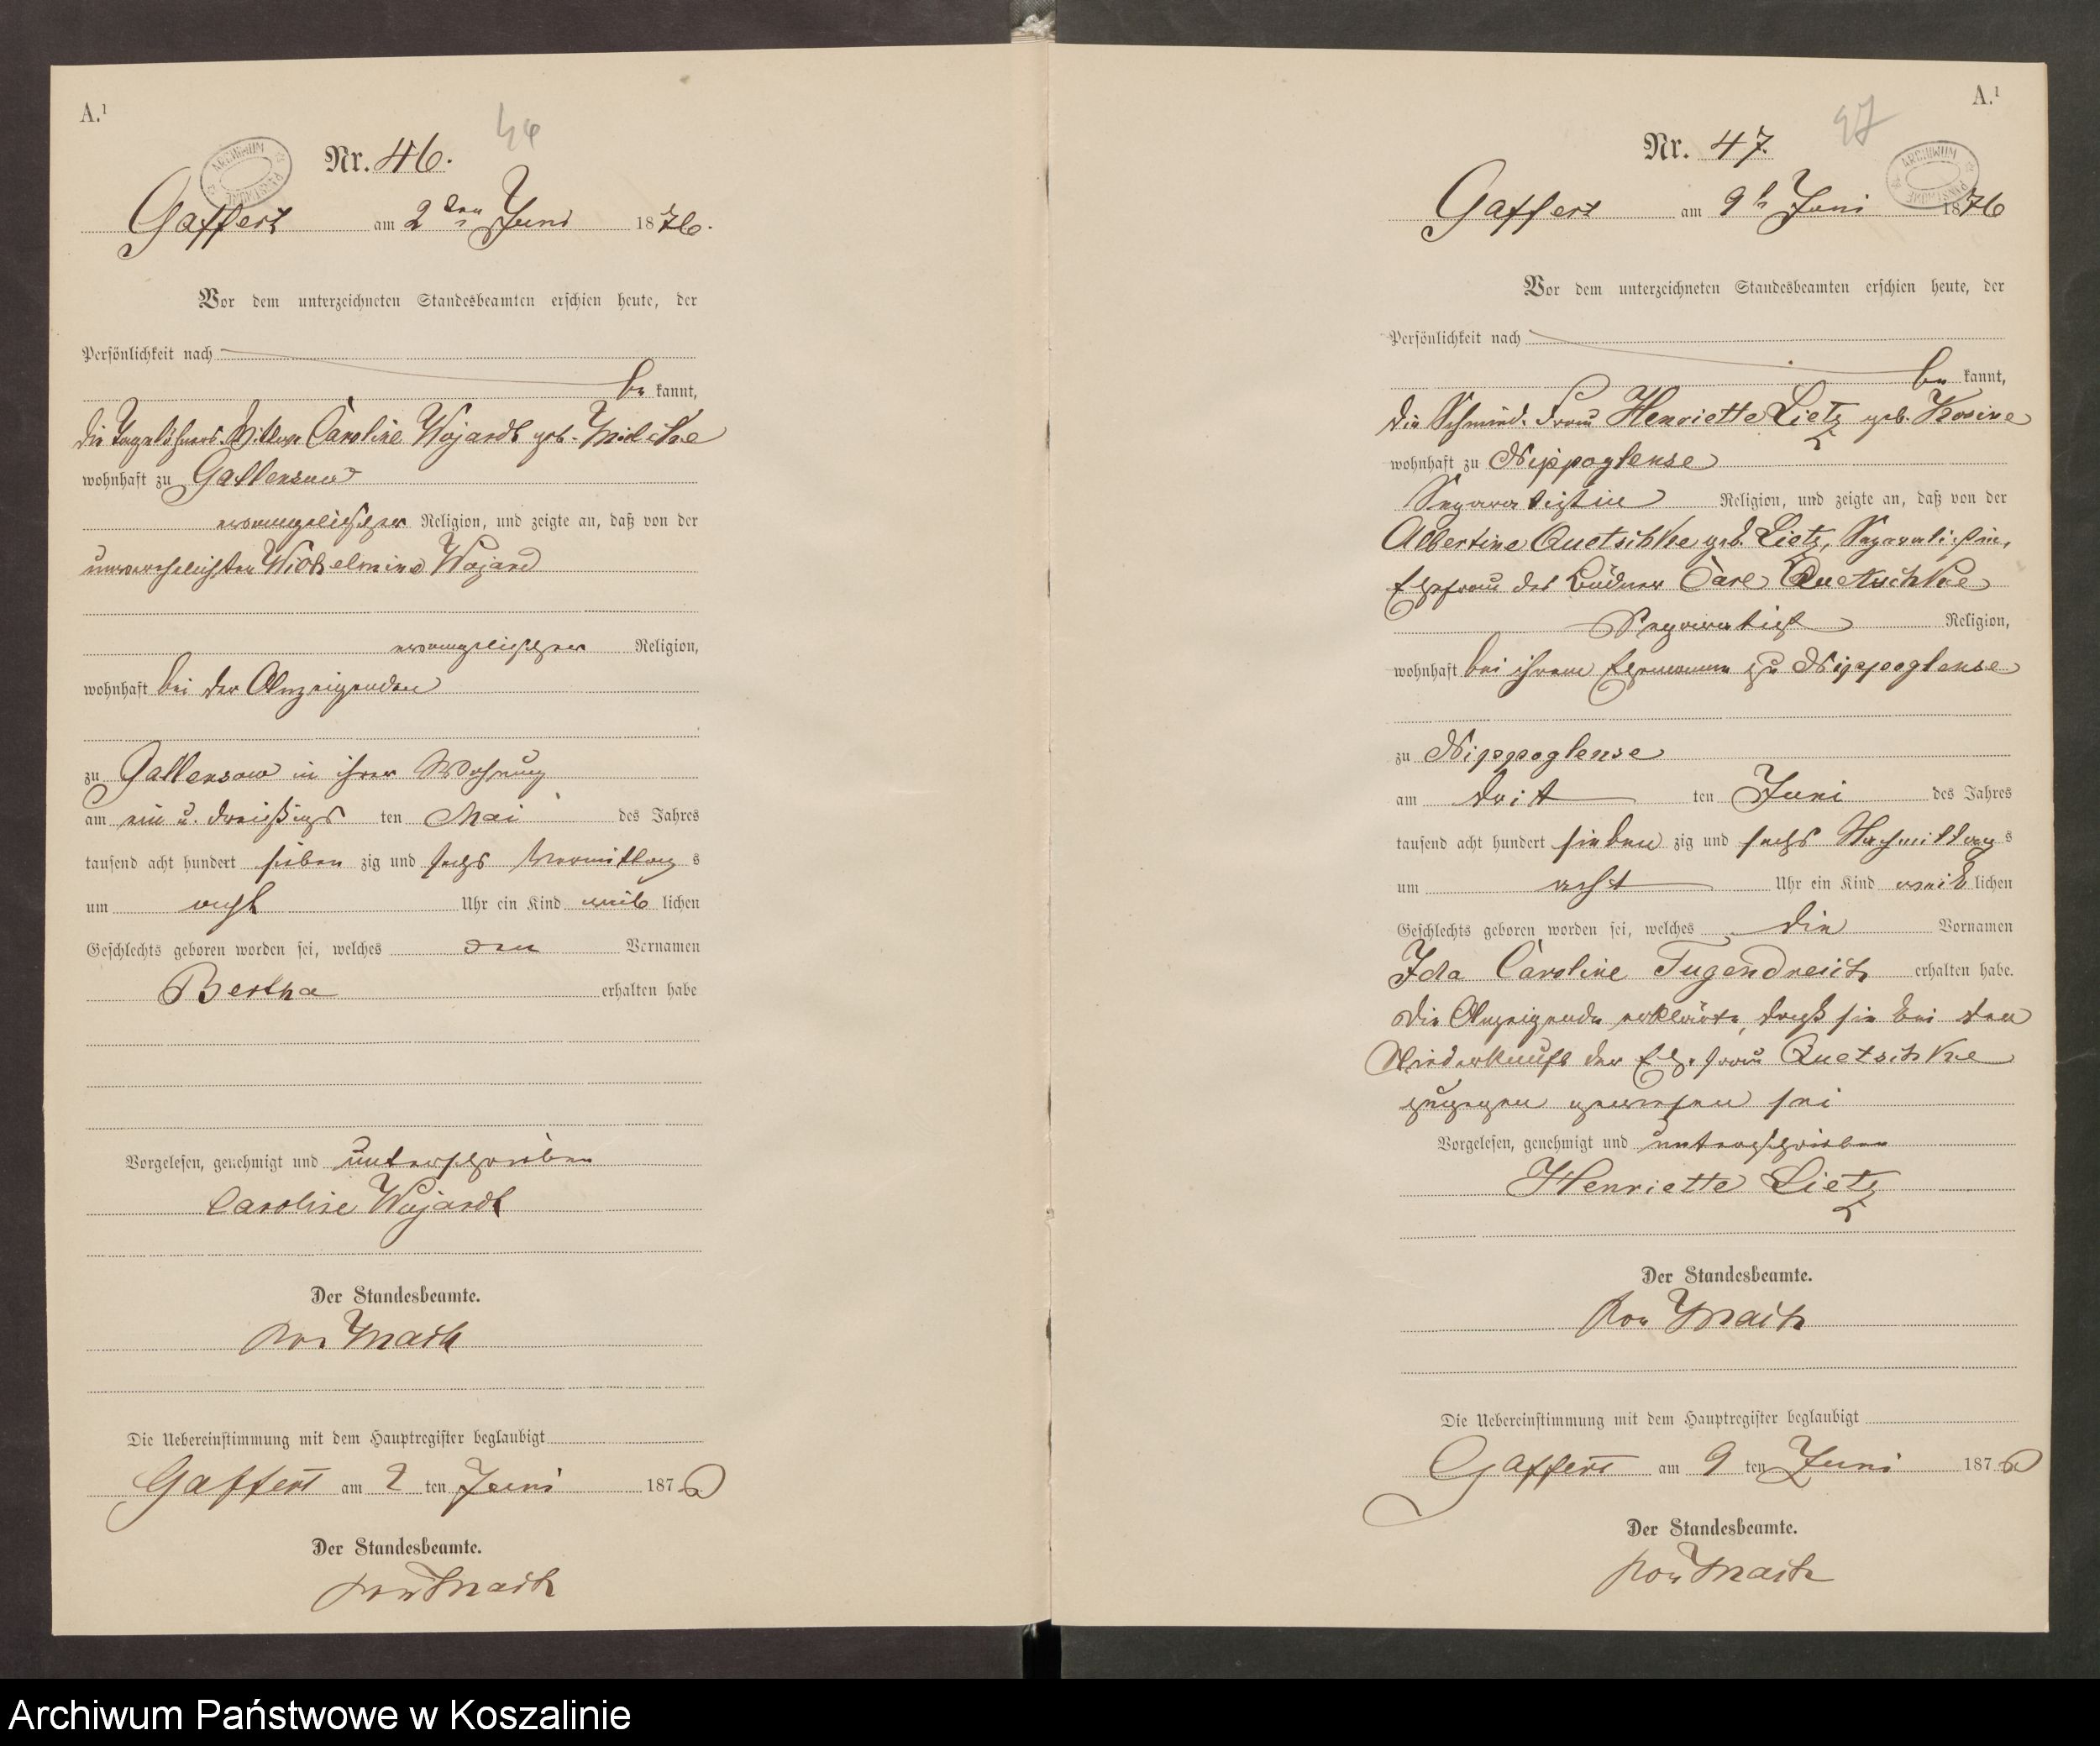 A.¹
46
Nr. 46.
ARCHIWUM PAŃSTWOWE
Gaffert am 2ten Juni 1876.
Vor dem unterzeichneten Standesbeamten erschien heute, der
Persönlichkeit nach
be kannt,
die Tagelöhners Wittwe Caroline Wojardt geb.
wohnhaft zu Gallensow
evangelischer Religion, und zeigte an, daß von der
unverehelichten Wilhelmine Wojard
evangelischer Religion,
wohnhaft bei der Anzeigenden
zu Gallensow in ihrer Wohnung
am ein u. dreißigst ten Mai des Jahres
tausend acht hundert sieben zig und sechs Vormittag s
um acht Uhr ein Kind weib lichen
Geschlechts geboren worden sei, welches den Vornamen
Bertha erhalten habe
Vorgelesen, genehmigt und unterschrieben
Caroline Wojardt
Der Standesbeamte.
von Mach
Die Uebereinstimmung mit dem Hauptregister beglaubigt
Gaffert am 2 ten Juni 1876
Der Standesbeamte.
von Mach
A.¹
47
Nr. 47.
ARCHIWUM PAŃSTWOWE
Gaffert am 9t Juni 1876
Vor dem unterzeichneten Standesbeamten erschien heute, der
Persönlichkeit nach
be kannt,
die Schmied-Frau Henriette Lietz geb. Kosine
wohnhaft zu Nippoglense
Separatistin Religion, und zeigte an, daß von der
Albertine Quetschke geb. Lietz, Separatistin,
Ehefrau des Büdner Carl Quetschke
Separatist Religion,
wohnhaft bei ihrem Ehemann zu Nippoglense
zu Nippoglense
am drit ten Juni des Jahres
tausend acht hundert sieben zig und sechs Nachmittag s
um acht Uhr ein Kind weib lichen
Geschlechts geboren worden sei, welches die Vornamen
Ida Caroline Tugendreich erhalten habe.
Die Anzeigende erklärte, daß sie bei der
Niederkunft der Ehefrau Quetschke
zugegen gewesen sei
Vorgelesen, genehmigt und unterschrieben
Henriette Lietz
Der Standesbeamte.
von Mach
Die Uebereinstimmung mit dem Hauptregister beglaubigt
Gaffert am 9 ten Juni 1876
Der Standesbeamte.
von Mach
Archiwum Państwowe w Koszalinie